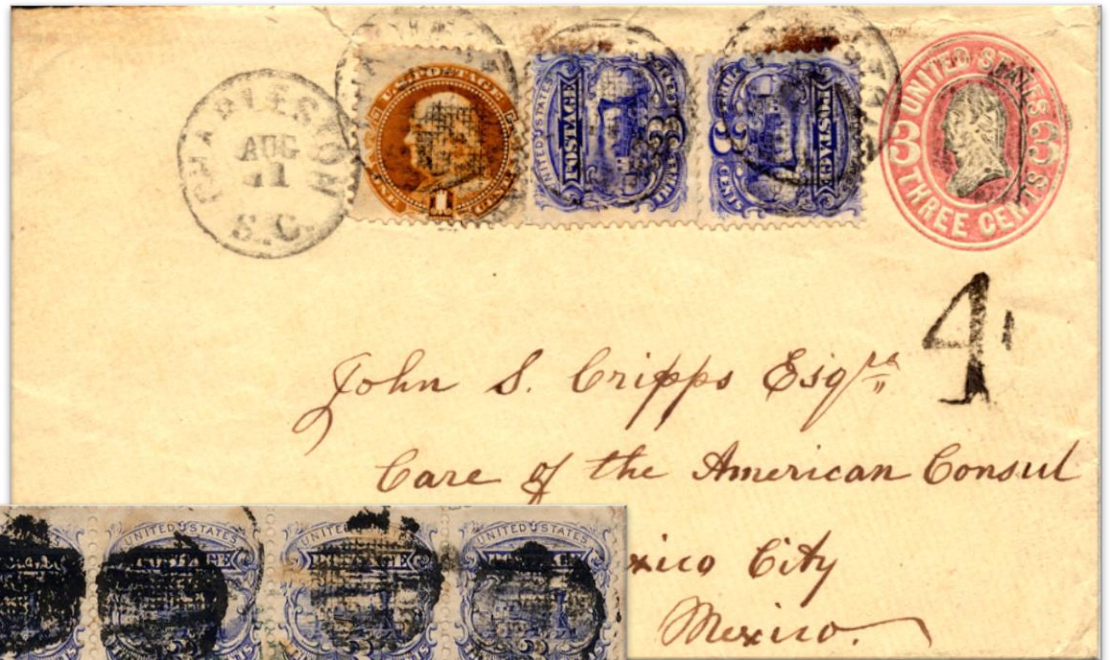 CHARLESTON
AUG
S.C.
U.S. POSTAGE
1
UNITED STATES
POSTAGE
3
CENTS
POSTAGE
3
CENTS
UNITED STATES
3 3
THREE CENTS
4
John S. Cripps Esqre
Care of the American Consul
xico City
Mexico.
UNITED STATES
POSTAGE
UNITED STATES
UNITED STATES